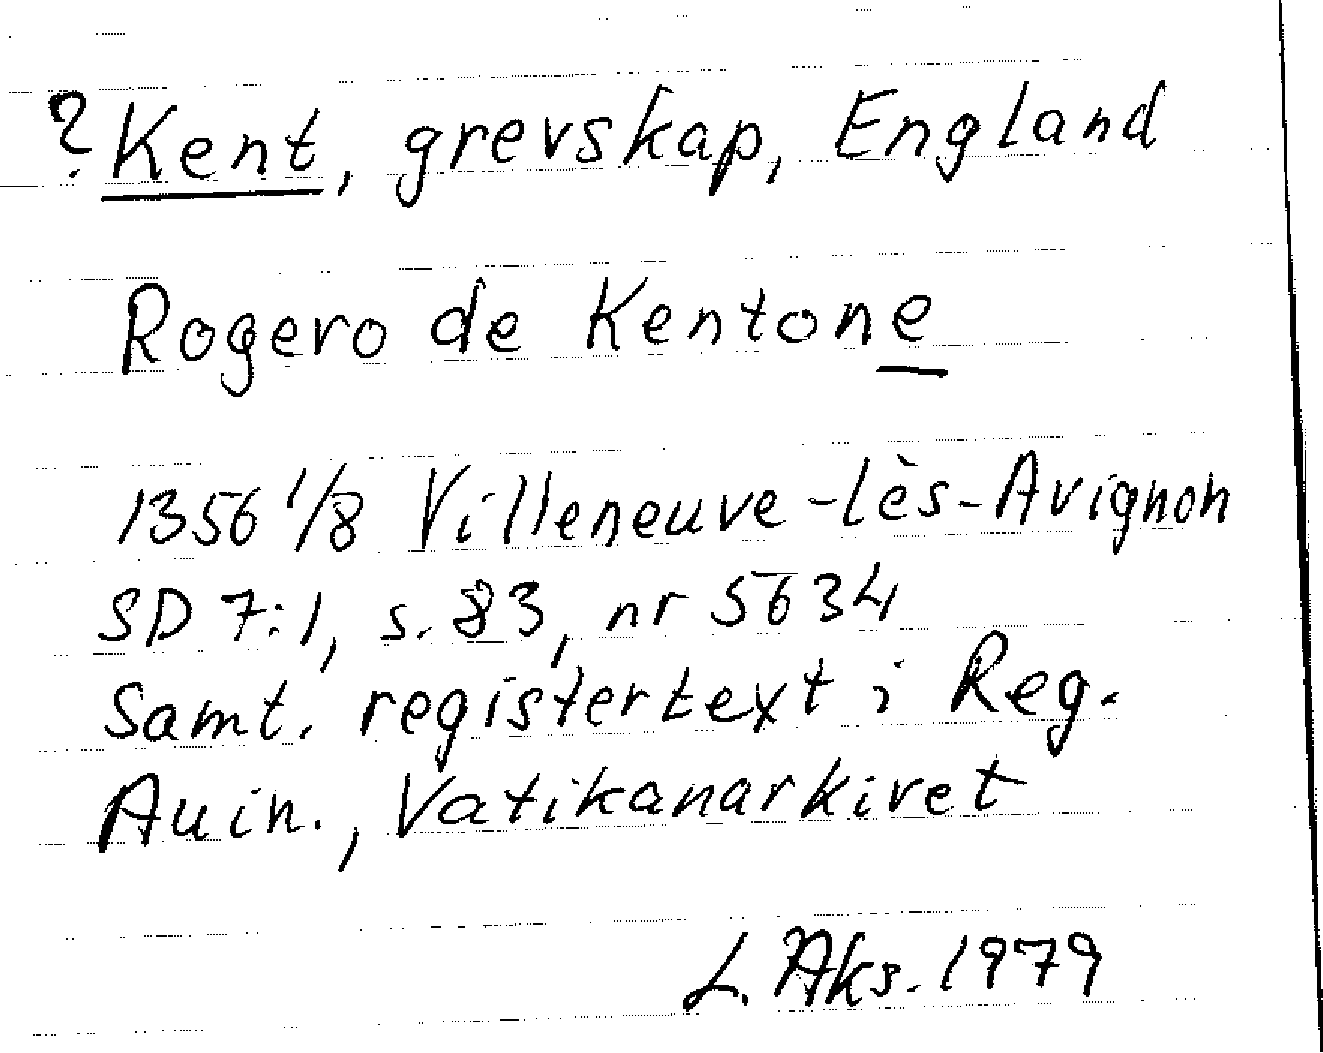 ? Kent, grevskap, England
Rogero de Kentone
1356 1/8 Villeneuve-lès-Avignon
SD 7:1, s. 83, nr 5634
Samt. registertext i Reg.
Auin., Vatikanarkivet
L. Aks. 1979